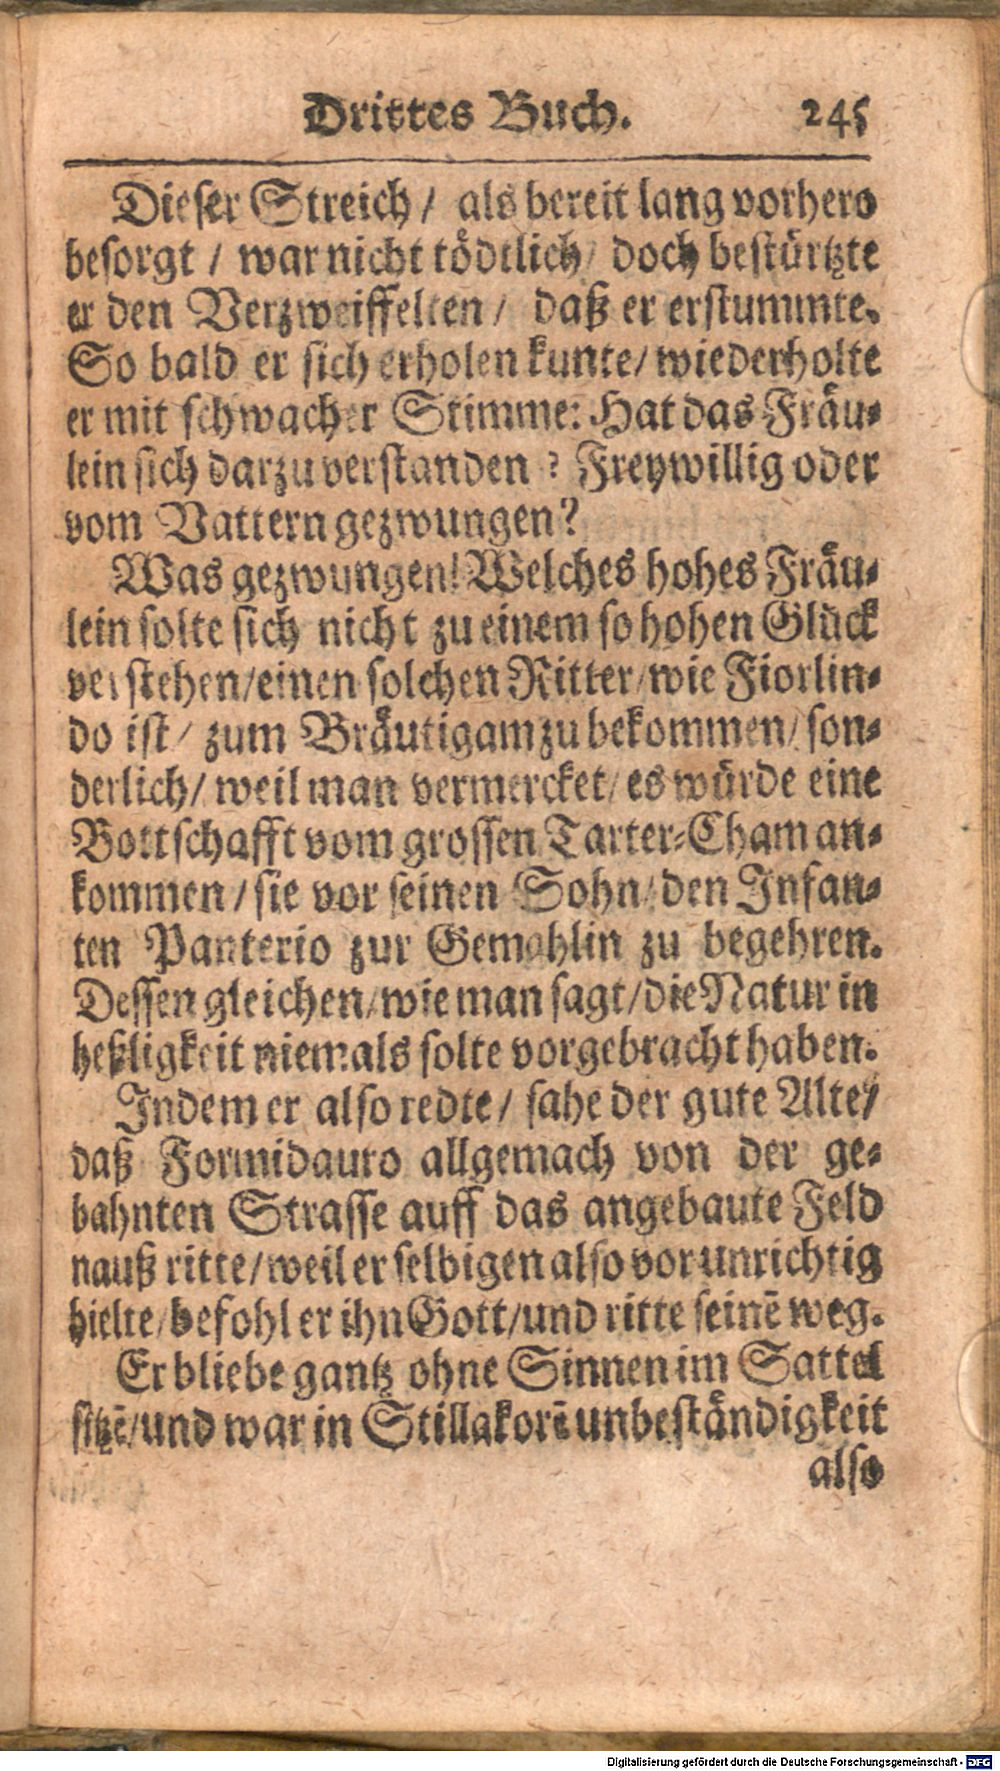 Drittes Buch. 245
Dieser Streich / als bereit lang vorhero
besorgt / war nicht tödtlich / doch bestürtzte
er den Verzweiffelten / daß er erstummte.
So bald er sich erholen kunte / wiederholte
er mit schwacher Stimme: Hat das Fräu-
lein sich darzu verstanden? Freywillig oder
vom Vattern gezwungen?
Was gezwungen! Welches hohes Fräu-
lein solte sich nicht zu einem so hohen Glück
verstehen / einen solchen Ritter / wie Fiorlin-
do ist / zum Bräutigam zu bekommen / son-
derlich / weil man vermercket / es würde eine
Bottschafft vom grossen Tarter-Cham an-
kommen / sie vor seinen Sohn / den Infan-
ten Panterio zur Gemahlin zu begehren.
Dessen gleichen / wie man sagt / die Natur in
heßligkeit niemals solte vorgebracht haben.
Indem er also redte / sahe der gute Alte /
daß Formidauro allgemach von der ge-
bahnten Strasse auff das angebaute Feld
nauß ritte / weil er selbigen also vor unrichtig
hielte / befohl er ihn Gott / und ritte seinē weg.
Er bliebe gantz ohne Sinnen im Sattel
sitzē / und war in Stillakorē unbeständigkeit
also
Digitalisierung gefördert durch die Deutsche Forschungsgemeinschaft - DFG